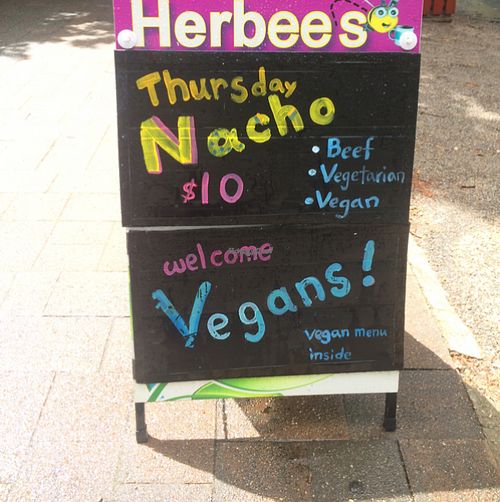 Herbees
Thursday
Nacho
$10
• Beef
• Vegetarian
• Vegan
welcome
Vegans!
vegan menu
inside